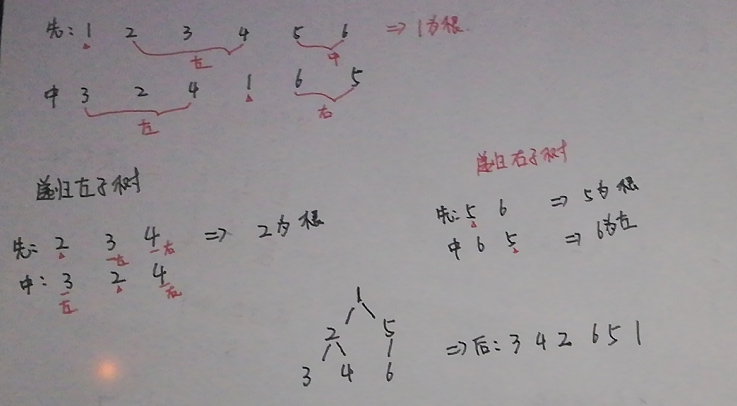 先: 1 2 3 4 5 6 => 1为根.
左 中
中 3 2 4 1 6 5
左 右
递归左子树
先: 2 3 4 => 2为根
左 右
中: 3 2 4
左 右
递归右子树
先: 5 6 => 5为根
中 6 5 => 6为左
1
2 5
3 4 6
=>后: 3 4 2 6 5 1